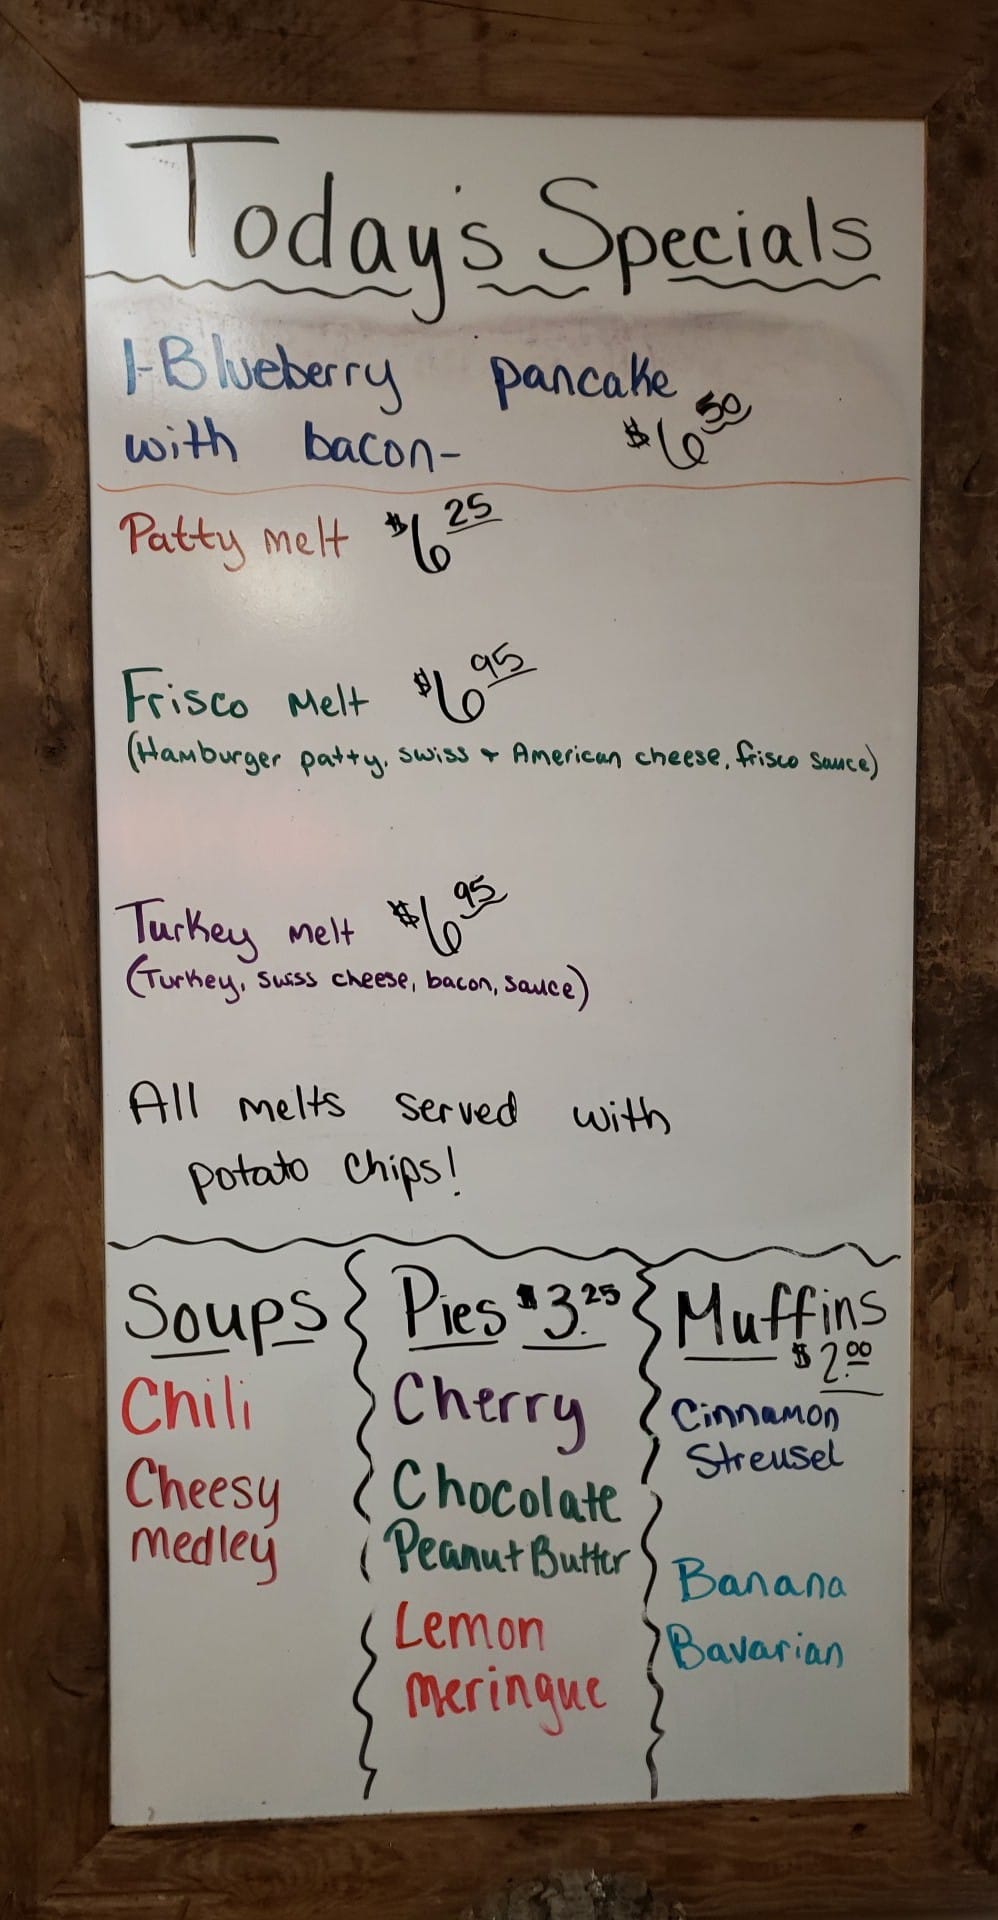 Today's Specials
1-Blueberry pancake
with bacon- $6.50
Patty melt $6.25
Frisco Melt $6.95
(Hamburger patty, swiss + American cheese, frisco sauce)
Turkey melt $6.95
(Turkey, swiss cheese, bacon, sauce)
All melts served with
potato chips!
Soups
Chili
Cheesy
medley
Pies $3.25
Cherry
Chocolate
Peanut Butter
Lemon
Meringue
Muffins
$2.00
Cinnamon
Streusel
Banana
Bavarian